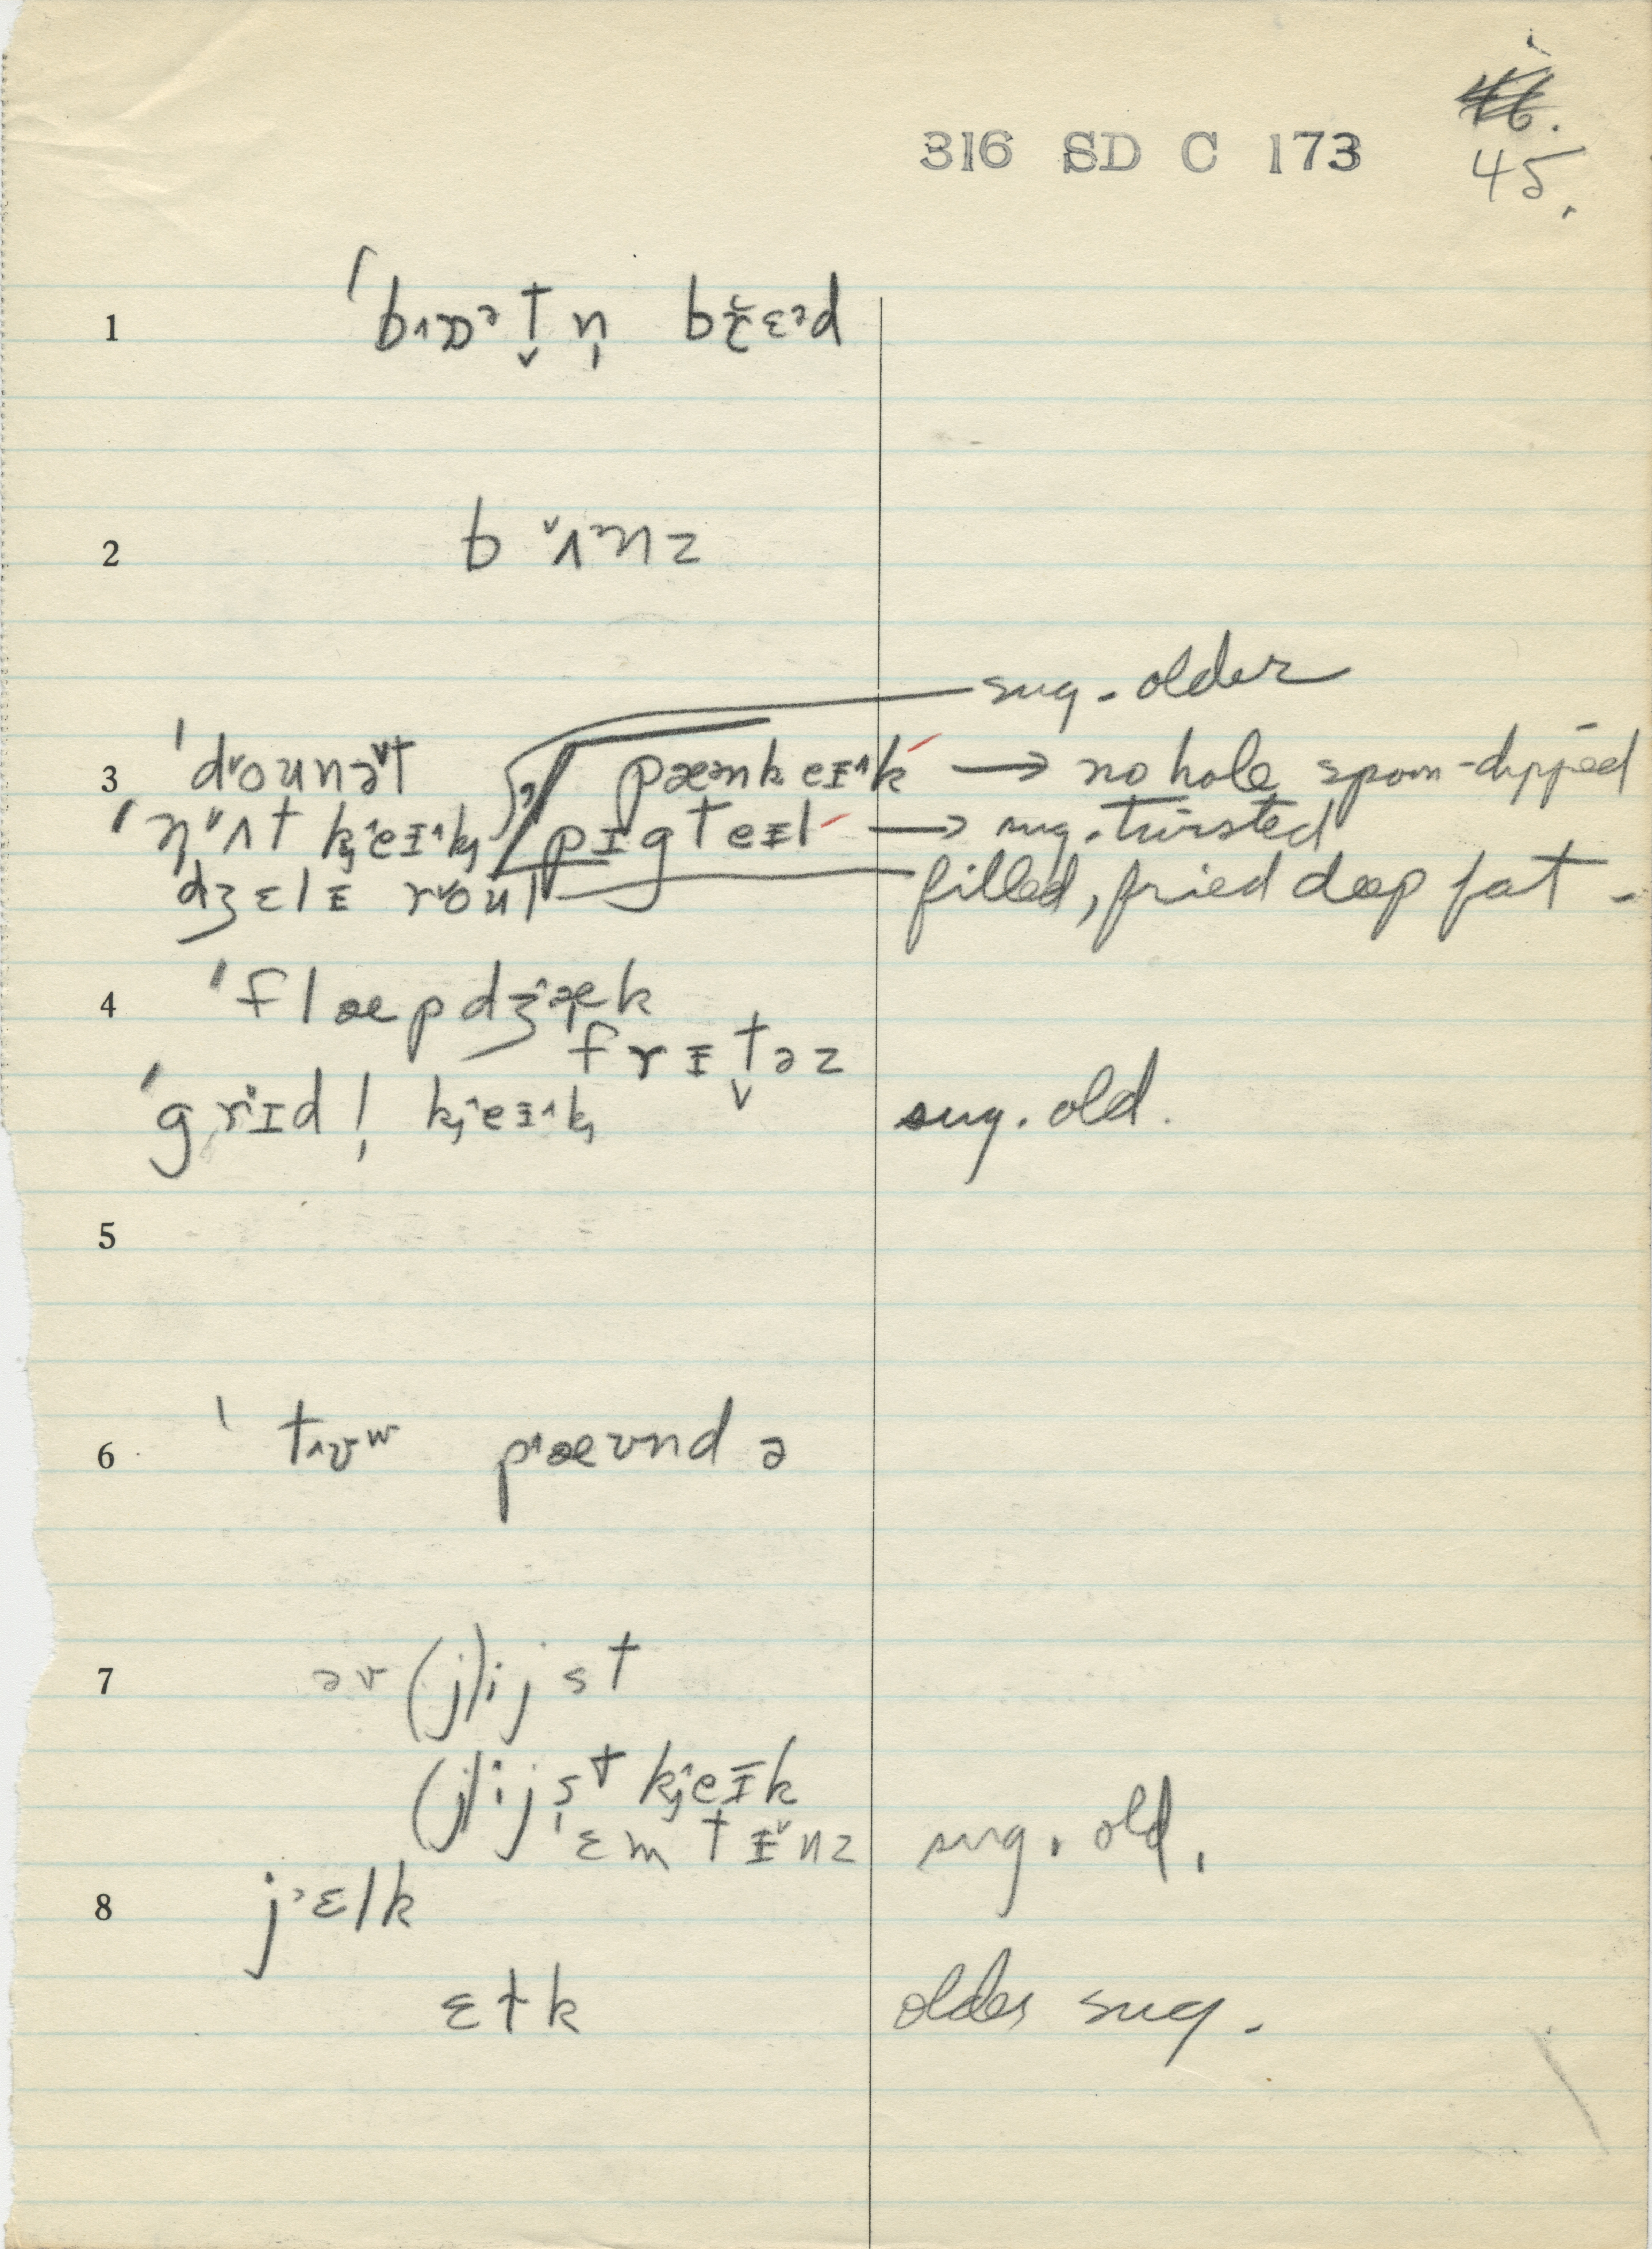 316 SD C 173
45.
1 ˈbɒətn̩ brɛəd
2 bʌnz
sug. older
3 ˈdounət pænkeɪk → no hole spoon-dipped
ˈnʌt keɪk pɪgteɪl → sug. twisted
dʒɛlɪ roul filled, fried deep fat -
4 ˈflæpdʒæk
frɪtəz
ˈgrɪdl̩ keɪk sug. old.
5
6 ˈtʊʷ pæʊnd ə
7 əv (j)ijst
(j)ijst keɪk
ɛmtɪnz sug. old.
8 jɛlk
ɛɫk older sug.